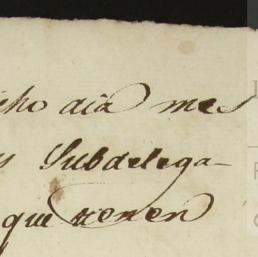 cho dia mes
y Subdelega-
que tienen